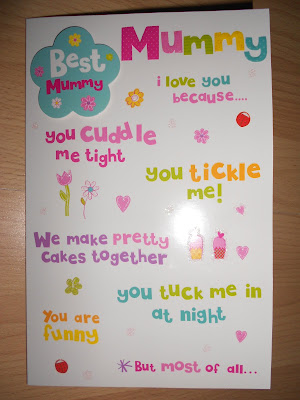 Best
Mummy
Mummy
i love you
because....
you cuddle
me tight
you tickle
me!
We make pretty
cakes together
you tuck me in
at night
You are
funny
*But most of all...